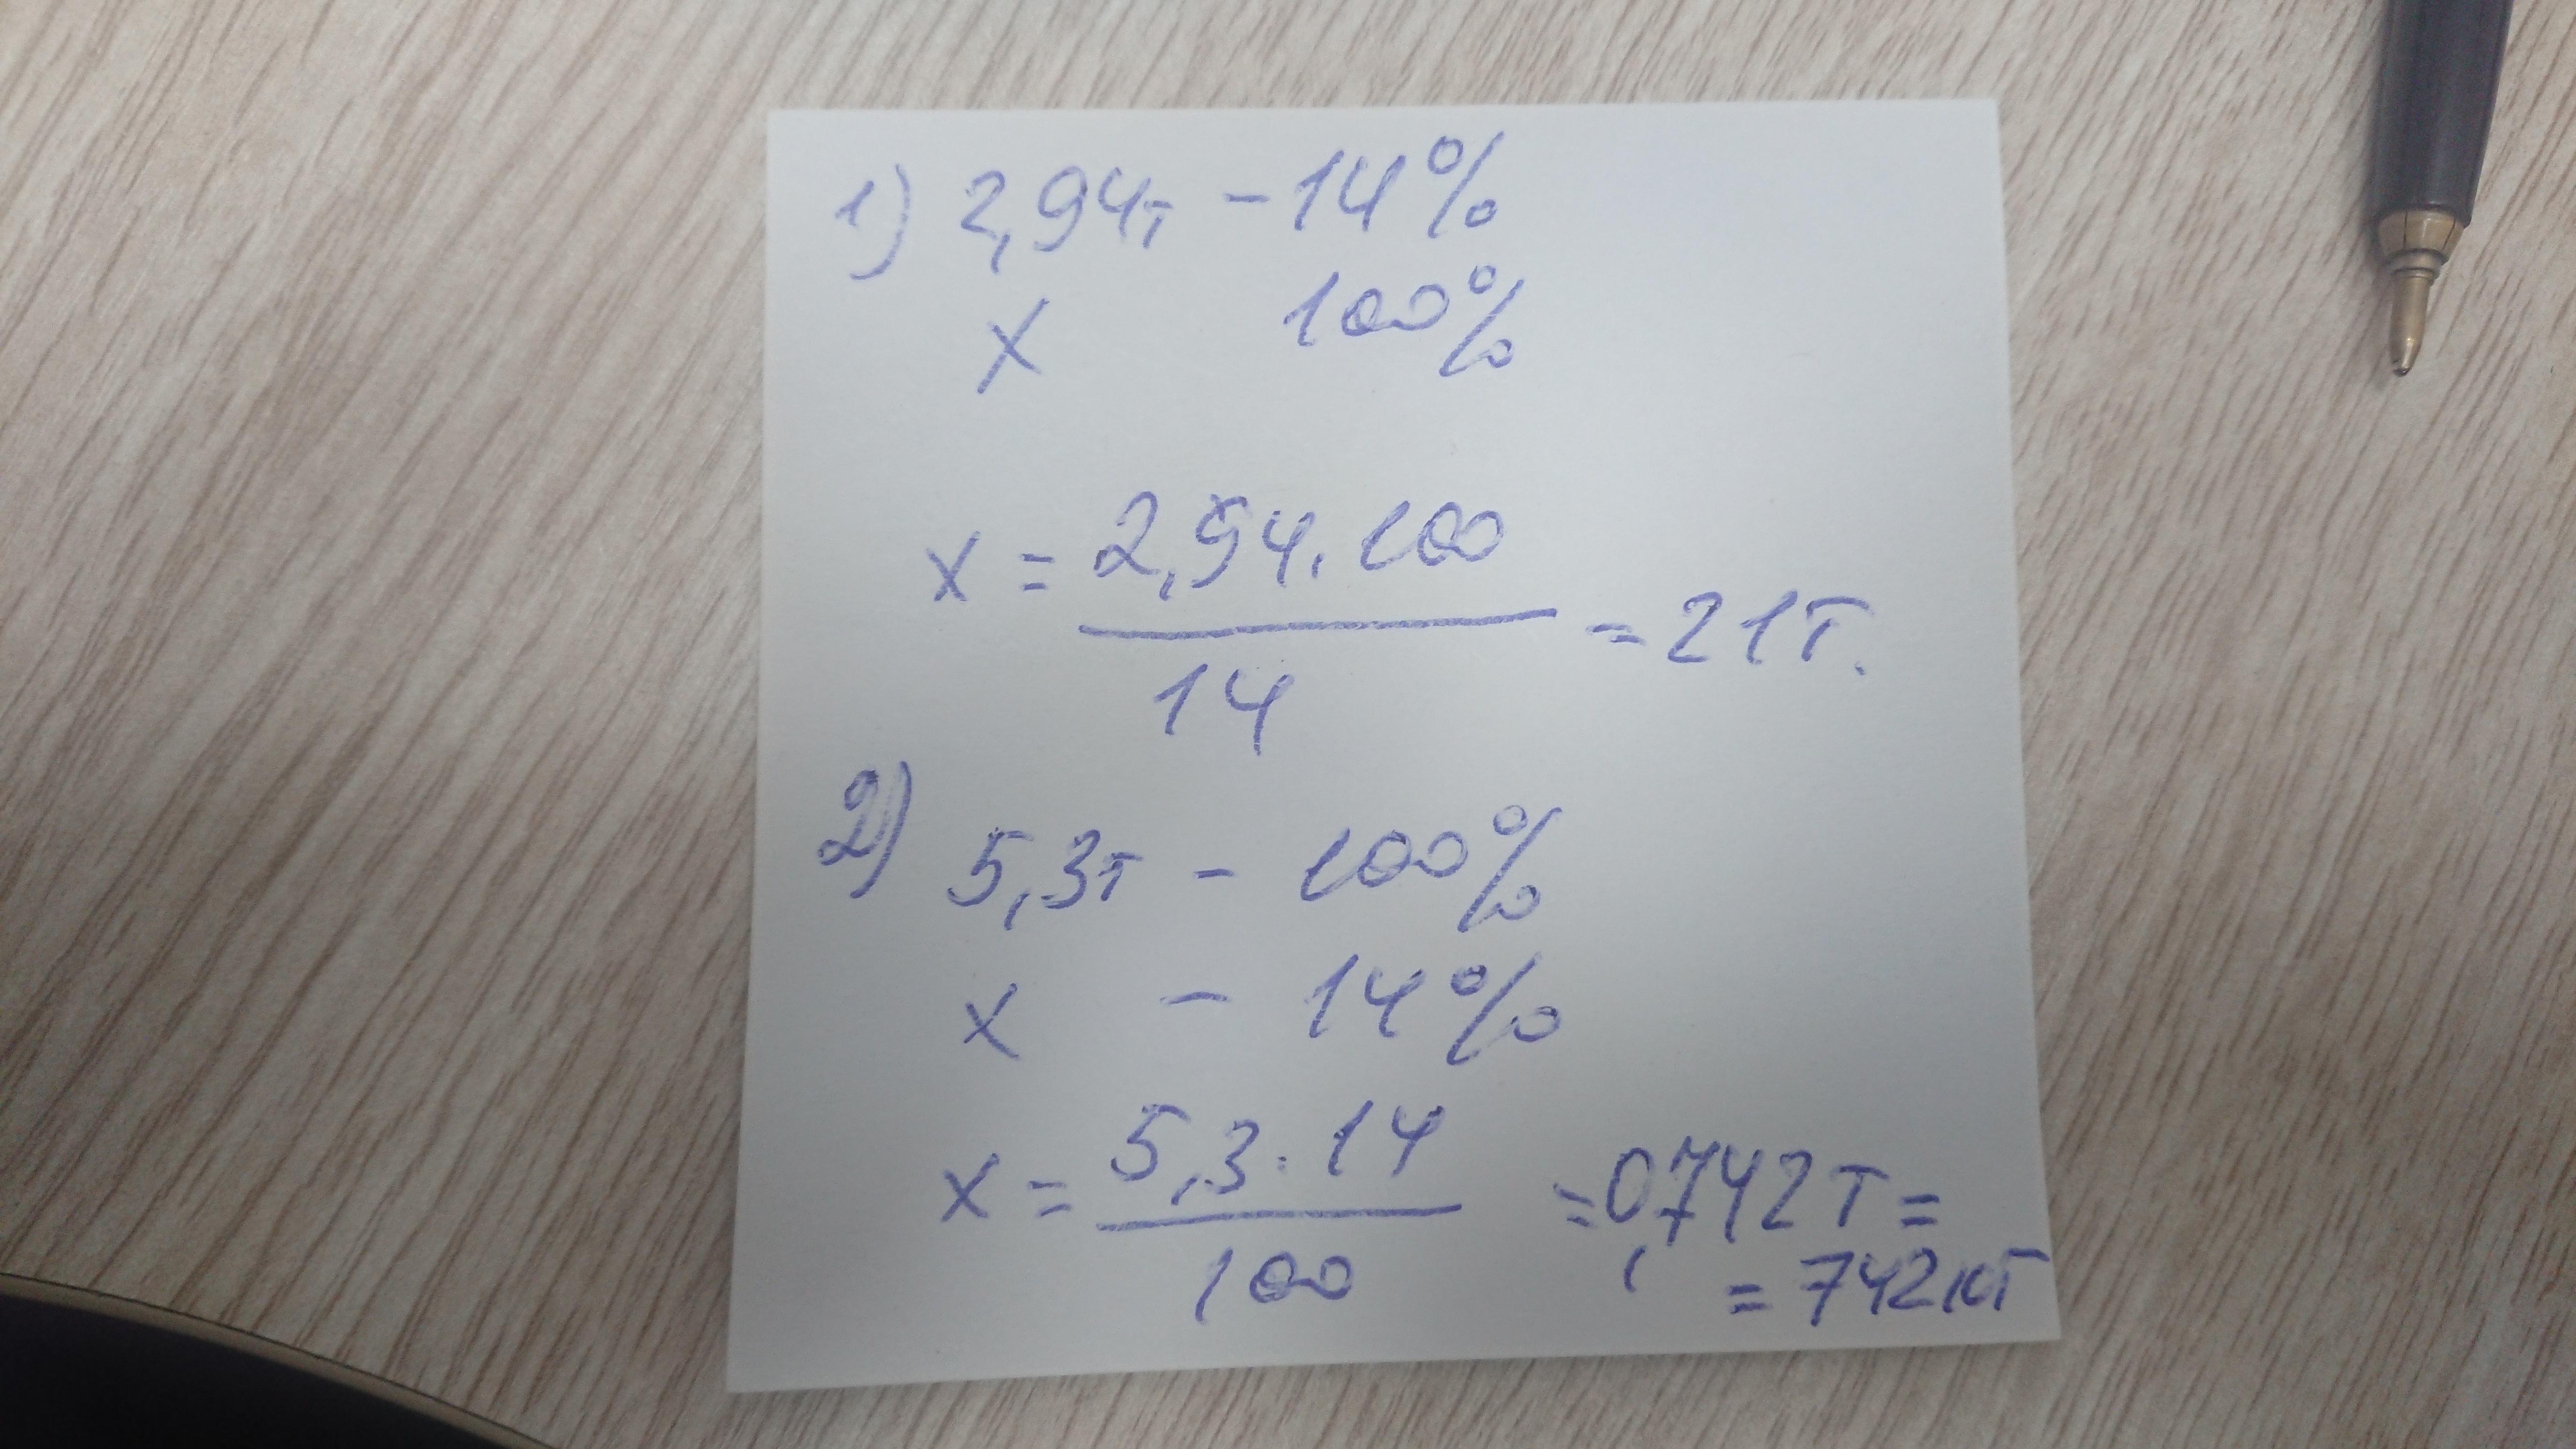 1) 2,94т - 14%
x 100%
x = 2,94 · 100
14
= 21т.
2) 5,3т - 100%
x - 14%
x = 5,3 · 14
100
= 0,742 т =
= 742 кг